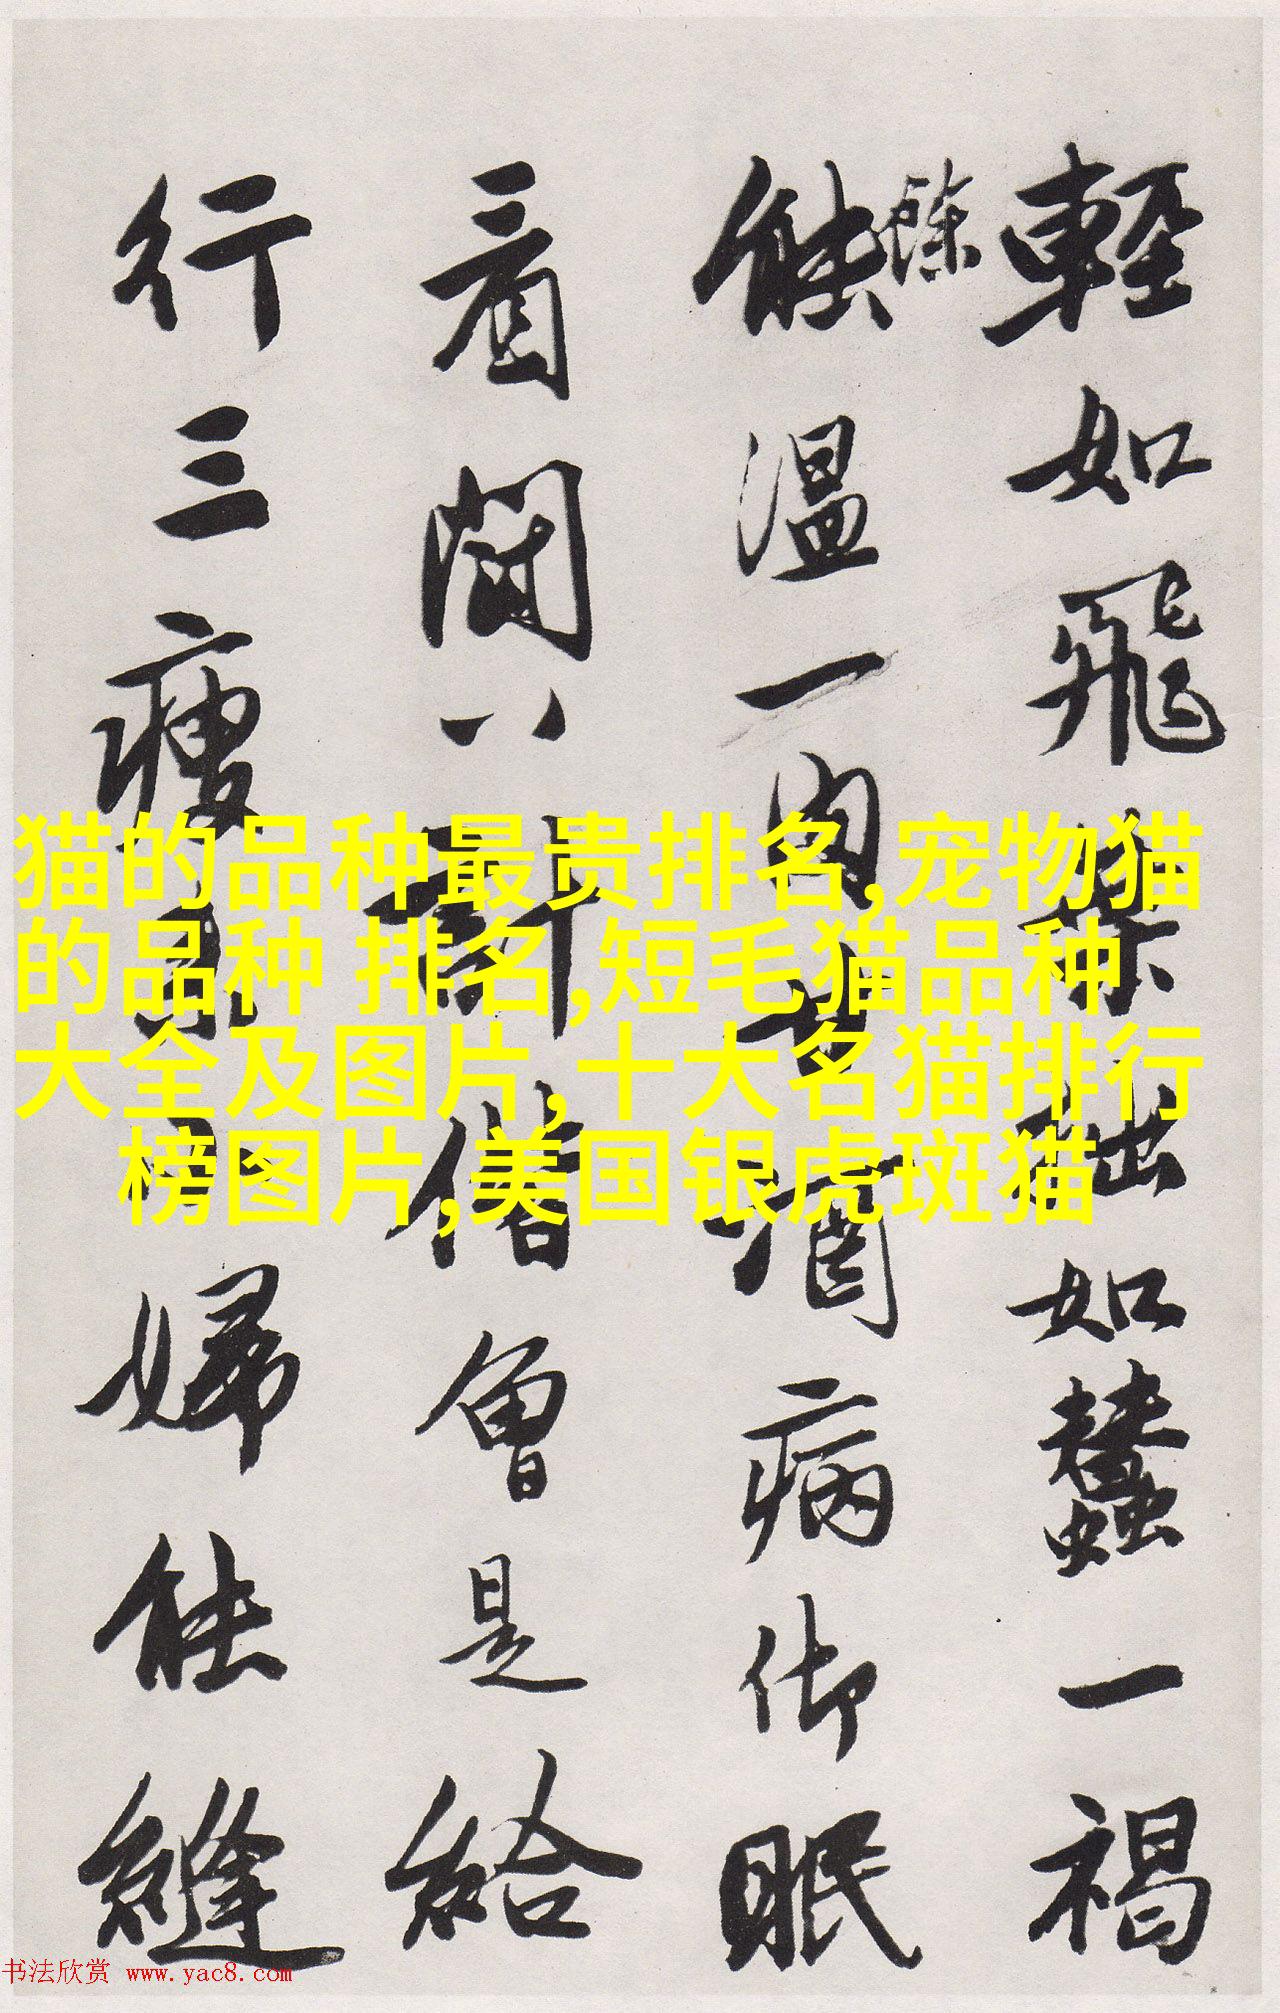 輕如飛葉拙如蠶一褐
能溫一肉甘酒病御眠
看閗八計偕曾是給
行三瘦婦能縫
猫的品种最贵排名,宠物猫
的品种 排名,短毛猫品种
大全及图片,十大名猫排行
榜图片,美国银虎斑猫
书法欣赏 www.yac8.com